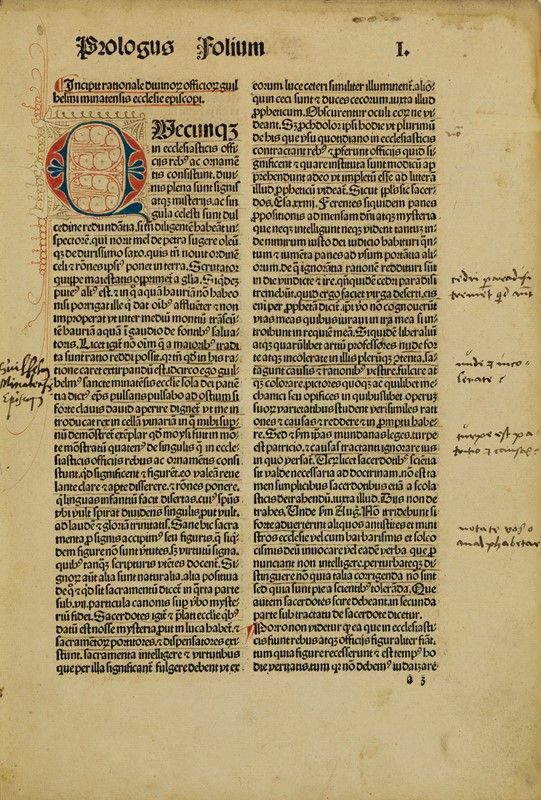 Prologus Folium I.
Incipit rationale diuinoꝝ officioꝝ guil
helmi minatensis ecclesie episcopi.
Quecunqꝫ
in ecclesiasticis offi
cijs rebꝰ ac orname
tis consistunt, diui
nis plena sunt signis
atqꝫ misterijs, ac sin
gula celesti sunt dul
cedine redundātia, si tñ diligentē habeāt in
spectorē, qui norit mel de petra sugere oleū
qꝫ de durissimo saxo. quis tñ nouit ordinē
celi ⁊ rōnes ipsiꝰ ponet in terra. Scrutator
quippe maiestatis opprimet̄ a gloria. Siqdeꝫ
puteꝰ altꝰ est. in quo aquā hauriā nō habeo
nisi porrigat ille qui dat oībꝰ affluēter ⁊ non
improperat vt inter mediū montiū trāseū
tē hauriā aquā ī gaudio de fontibꝰ salua
toris. Licet igit̄ nō oīm que a maioribꝰ tradi
ta sunt ratio reddi possit.
ratione caret extirpandū est. idcirco ego guil
helmꝰ sancte minatēsis ecclesie sola dei patiē
tia dictꝰ eps pulsans pulsabo ad ostium si
forte clauis dauid aperire dignet̄ vt me in
troducat rex in cellā vinariā in qua mihi sup
nū demōstret̄ exēplar quod moysi fuit in mō
te mōstratū quatenꝰ de singulis que in eccle
siasticis officijs rebus ac ornamētis consi
stunt. quid significēt ⁊ figurēt. eo valeā reue
lante clare ⁊ apte disserere. ⁊ rōnes ponere.
qui linguas infantiū facit disertas. cuiꝰ spūs
vbi vult spirat diuidens singulis prout vult.
ad laudē ⁊ gloriā trinitatis. Sane hic sacra
menta pro signis accipimꝰ seu figuris. que siqui
dem figure nō sunt v̄tutes. sꝫ virtutū signa.
quibꝰ tanqꝫ scripturis vtētes docent̄. Si
gnoꝝ aūt alia sunt naturalia. alia positiua
de qbꝰ ⁊ quid sit sacramentū dicet̄ in qrta parte
sub.vij. particula canonis sup ybo myste-
riū fidei. Sacerdotes igit̄ ⁊ prelati ecclesie qbꝰ
datū est nosse mysteria, put in luca habet̄. ⁊
sacramētoꝝ portitores ⁊ dispensatores exi
stunt. sacramenta intelligere ⁊ virtutibus
que per illa significant̄ fulgere debent vt ex
eorum luce ceteri similiter illuminent̄. alio-
quin ceci sunt ⁊ duces cecorum. iuxta illud
ppheticum. Obscurent̄ oculi eoꝝ ne vi-
deant. Sꝫ proh dolor ipsi hodie vt plurimū
de his que vsu quotidiano in ecclesiasticis
contractant rebꝰ ⁊ pferunt officijs quid si-
gnificent ⁊ quare instituta sunt modicū ap
prehendunt adeo vt impletū esse ad litterā
illud ppheticū videat̄. Sicut ppls sic sacer-
dos. Esa.xxiiij. Ferentes siquidem panes
ppositionis ad mensam dñi atqꝫ mysteria
que neqꝫ intelligunt neqꝫ vident tantūm
de nimirum iusto dei iudicio habituri quan-
tum ⁊ iumenta panes ad vsum portātia alio
rum. de qua ignorātia rationē reddituri sūt
in die vindicte ⁊ ire. cum quidē cedri paradisi
tremebūt. quid ergo faciet virga deserti. eis
eni per pphetā dicit̄. ipsi vo nō cognouerūt
vias meas quibus iuraui in ira mea si in-
troibunt in requiē meā. Si quidē liberaliū
atqꝫ quarūlibet artiū professores nude for
te atqꝫ incolorate in illis plerūqꝫ posita. sa-
tagunt causatis ⁊ rationibꝰ vestire. fulcire at
qꝫ colorare. pictores quoqꝫ ac quilibet me-
chanici seu opifices in quibuslibet operum
suoꝝ varietatibus student verisimiles rati
ones ⁊ causas ⁊ reddere ⁊ in promptu habe-
re. Sed ⁊ fm ipas mundanas leges. turpe
est patricio. ⁊ causas tractanti ignorare ius
in quo versat̄. Verum licet sacerdotibꝰ sciētia
sit valde necessaria ad doctrinam. nō est ta
men simplicibus sacerdotibus etiā a scola
sticis detrahendū. iuxta illud. Dijs non de
trahes. Unde fm Aug. Nō irridebunt si
forte aduerterint aliquos antistites et mini
stros ecclesie vel cum barbarismis et solo e
cismis deū inuocare vel eadē verba que pro
nunciant non intelligere. perturbateqꝫ di-
stinguere nō quia talia corrigenda nō sint
sed quia sunt pie a scientibꝰ tolerāda. Que
autem sacerdotes scire debeant. in secunda
parte sub tractatu de sacerdote dicetur.
Porro non videtur qd ea que in ecclesiasti-
cis fiunt rebus atqꝫ officijs figuraliter fiāt.
tum quia figure recesserunt ⁊ est tempꝰ ho
die veritatis. tum quia nō debemꝰ iudaizare
a 3
Guilhelm
Minatensis
Episcopꝰ
cedri paradisi
nudi ⁊ inco-
lorate
turpe est pa-
tricio ⁊ causas